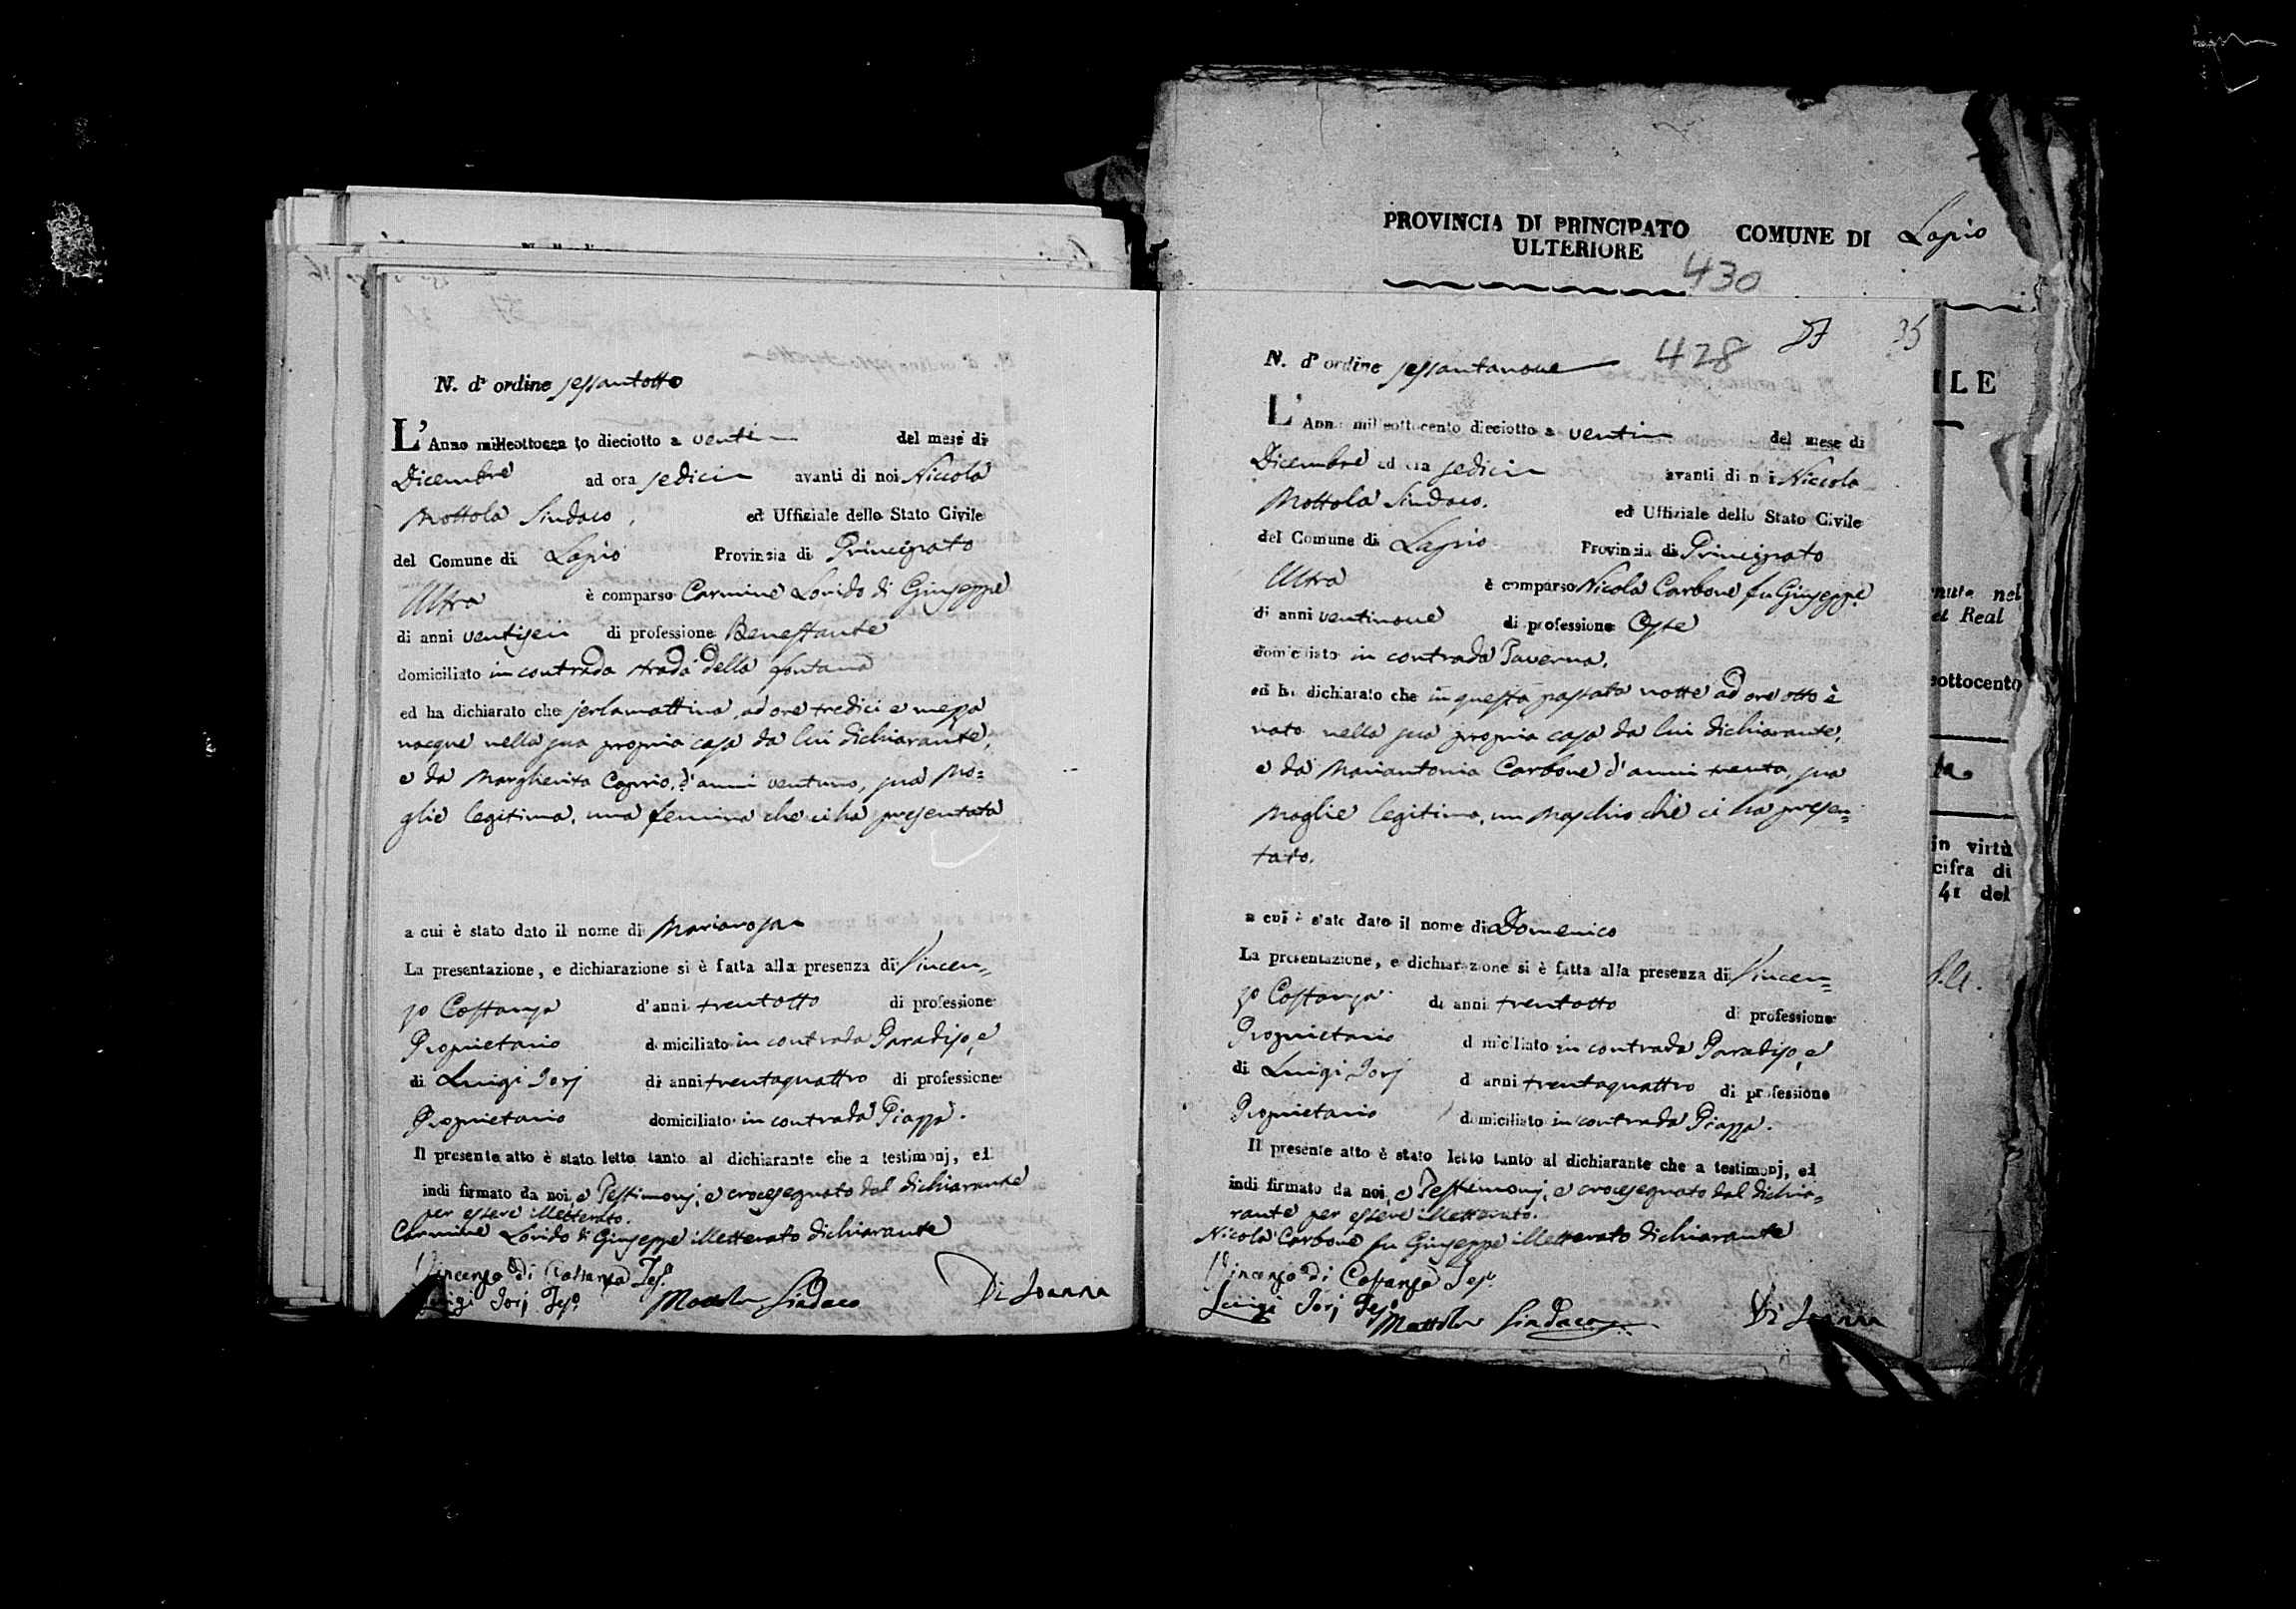 N. d'ordine sessantotto
L'Anno milleottocento dieciotto a venti del mese di
Dicembre ad ora sedici avanti di noi Niccola
Mottola Sindaco, ed Uffiziale dello Stato Civile
del Comune di Lapio Provinzia di Principato
Ultra è comparso Carmine Lonido di Giuseppe
di anni ventisei di professione Benestante
domiciliato in contrada strada della fontana
ed ha dichiarato che jerlamattina, ad ore tredici e mezza
nacque nella sua propria casa da lui dichiarante,
e da Margherita Caprio, d'anni ventuno, sua mo=
glie legitima, una femina che ci ha presentata
a cui è stato dato il nome di Mariarosa
La presentazione, e dichiarazione si è fatta alla presenza di Vincen=
zo Costanza d'anni trentotto di professione
Proprietario domiciliato in contrada Paradiso, e
di Luigi Iorj di anni trentaquattro di professione
Proprietario domiciliato in contrada Piazza.
Il presente atto è stato letto tanto al dichiarante che a testimonj, ed
indi firmato da noi, e Testimonj, e crocesegnato dal dichiarante
per essere illetterato.
Carmine Lonido di Giuseppe illetterato dichiarante
Vincenzo di Costanza Teso
Luigi Iorj Teso Mottola Sindaco Di Joanna
PROVINCIA DI PRINCIPATO COMUNE DI Lapio
ULTERIORE
430
428 57 35
N. d'ordine sessantanove
L'Anno milleottocento dieciotto a venti del mese di
Dicembre ad ora sedici avanti di noi Niccola
Mottola Sindaco. ed Uffiziale dello Stato Civile
del Comune di Lapio Provinzia di Principato
Ultra è comparso Nicola Carbone fu Giuseppe
di anni ventinove di professione Oste
domiciliato in contrada Taverna.
ed ha dichiarato che in questa passata notte ad ore otto è
nato nella sua propria casa da lui dichiarante,
e da Mariantonia Carbone d'anni trenta, sua
moglie legitima, un maschio che ci ha presen=
tato.
a cui è stato dato il nome di Domenico
La presentazione, e dichiarazione si è fatta alla presenza di Vincen=
zo Costanza di anni trentotto di professione
Proprietario domiciliato in contrada Paradiso, e
di Luigi Iorj d anni trentaquattro di professione
Proprietario domiciliato in contrada Piazza.
Il presente atto è stato letto tanto al dichiarante che a testimonj, ed
indi firmato da noi, e Testimonj, e crocesegnato dal dichia=
rante per essere illetterato.
Nicola Carbone fu Giuseppe illetterato dichiarante
Vincenzo di Costanza Teso
Luigi Iorj Teso
Mottola Sindaco Di Joanna
ILE
nuta nel
et Real
sottocento
in virtù
cifra di
41 del